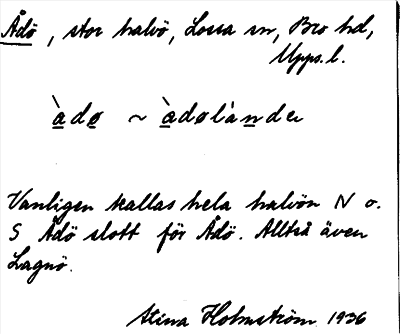 Ådö, stor halvö, Lossa sn, Bro hd,
Upps. l.
àdø ~ àdølànder
Vanligen kallas hela halvön N o.
S Ådö slott för Ådö. Alltså även
Lagnö.
Stina Holmström 1936